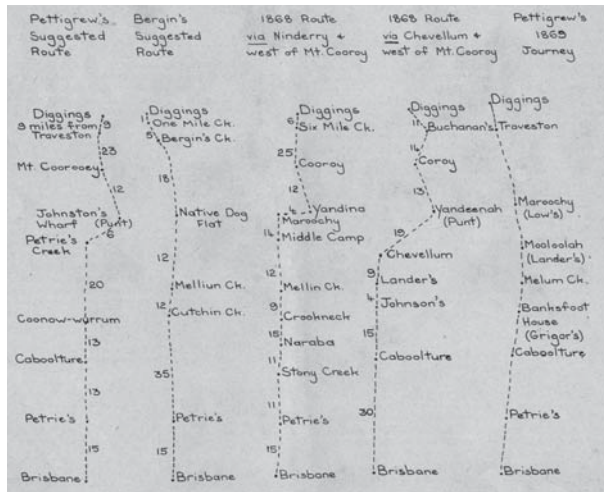 Pettigrew's
Suggested
Route
Diggings
9
9 miles from
Traveston
23
Mt. Coorooey
12
Johnston's
Wharf (Punt)
6
Petrie's
Creek
20
Coonow-wurrum
13
Caboolture
13
Petrie's
15
Brisbane
Bergin's
Suggested
Route
Diggings
1
One Mile Ck.
5
Bergin's Ck.
18
Native Dog
Flat
12
Melliun Ck.
12
Cutchin Ck.
35
Petrie's
15
Brisbane
1868 Route
via Ninderry &
west of Mt. Cooroy
Diggings
6
Six Mile Ck.
25
Cooroy
12
Yandina
4
Maroochy
14
Middle Camp
12
Mellin Ck.
9
Crookneck
15
Naraba
11
Stony Creek
11
Petrie's
15
Brisbane
1868 Route
via Chevellum &
west of Mt. Cooroy
Diggings
11
Buchanan's
14
Coroy
13
Yandeenah
(Punt)
19
Chevellum
9
Lander's
4
Johnson's
15
Caboolture
30
Brisbane
Pettigrew's
1863
Journey
Diggings
Traveston
Maroochy
(Low's)
Mooloolah
(Lander's)
Melum Ck.
Banksfoot
House
(Grigor's)
Caboolture
Petrie's
Brisbane